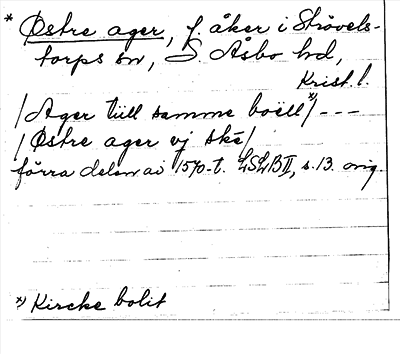 * Østre ager, f. åker i Strövels-
torps sn, S. Åsbo hd,
Krist. l.
/Ager tiill samme boell *)/ - - -
/Østre ager vj skē/
förra delen av 1570-t. LSLB II, s. 13. orig.
*) Kircke bolit